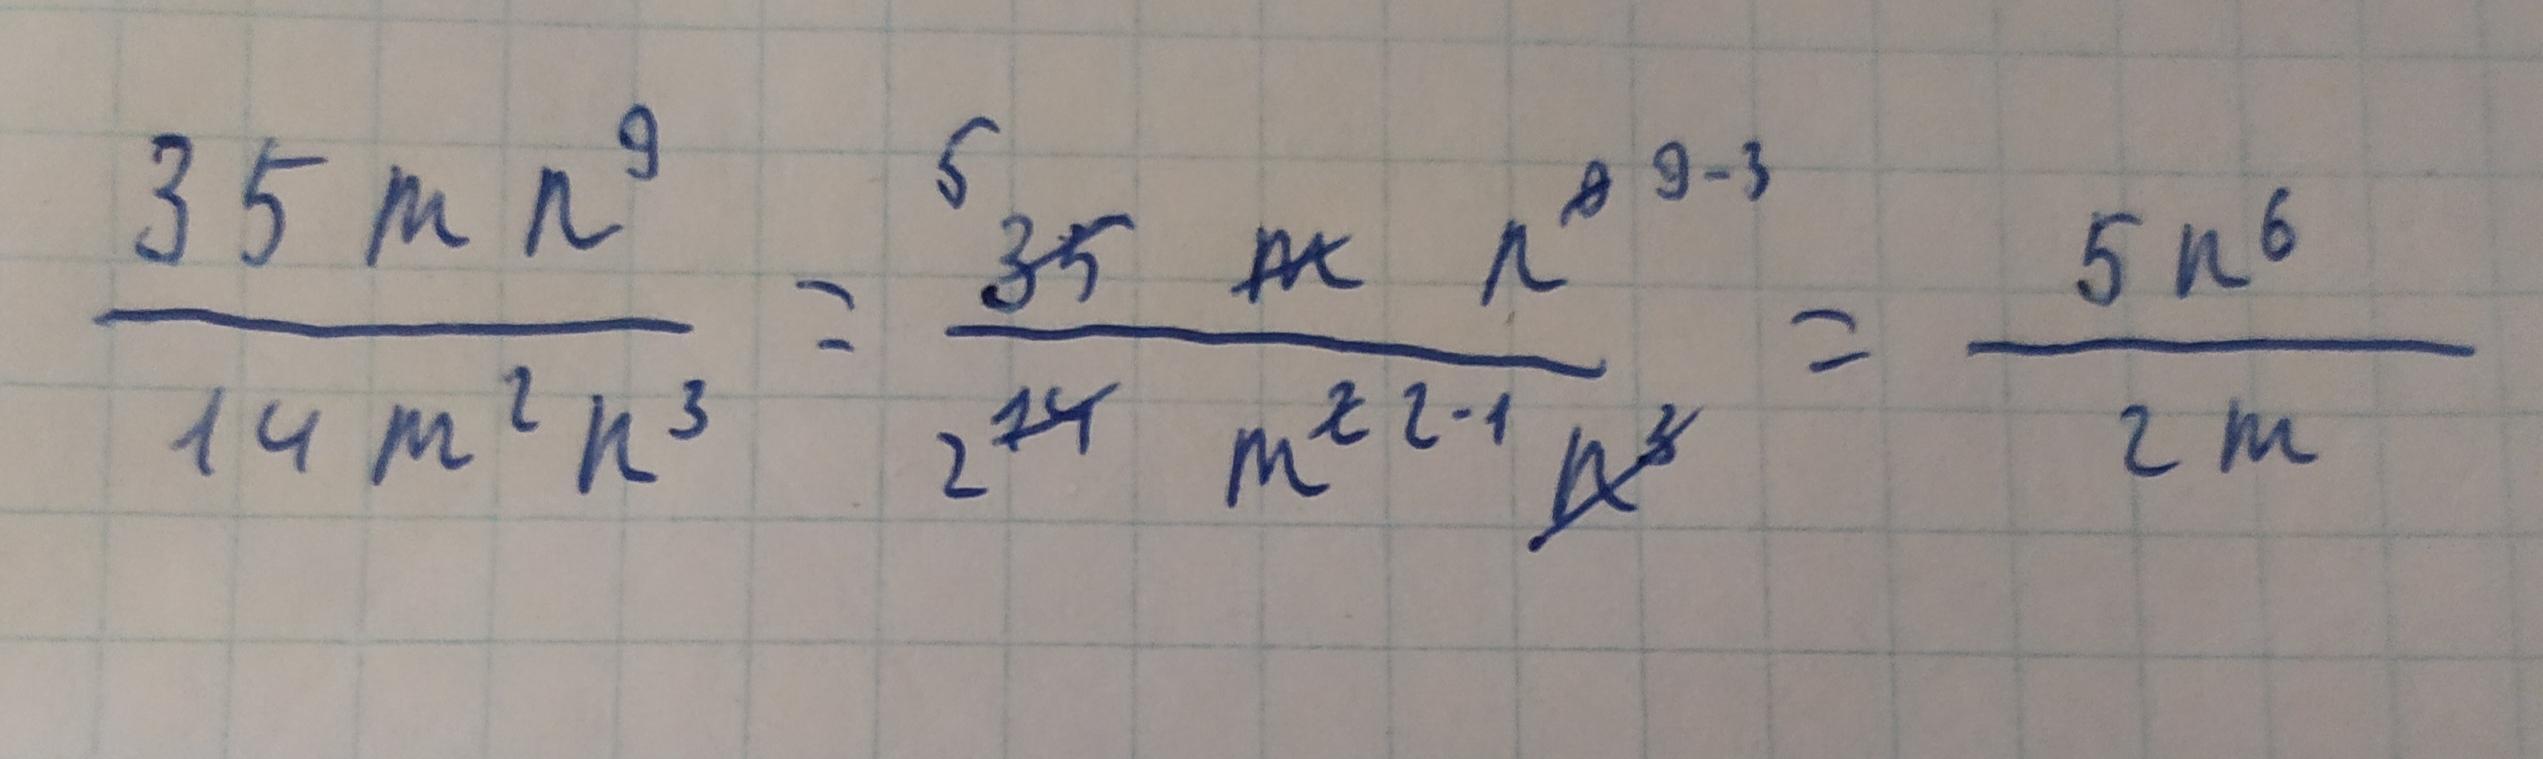 35 m n⁹ / 14 m² n³ = ⁵35 m n⁹ ⁹⁻³ / ₂14 m² ²⁻¹ n³ = 5 n⁶ / 2 m